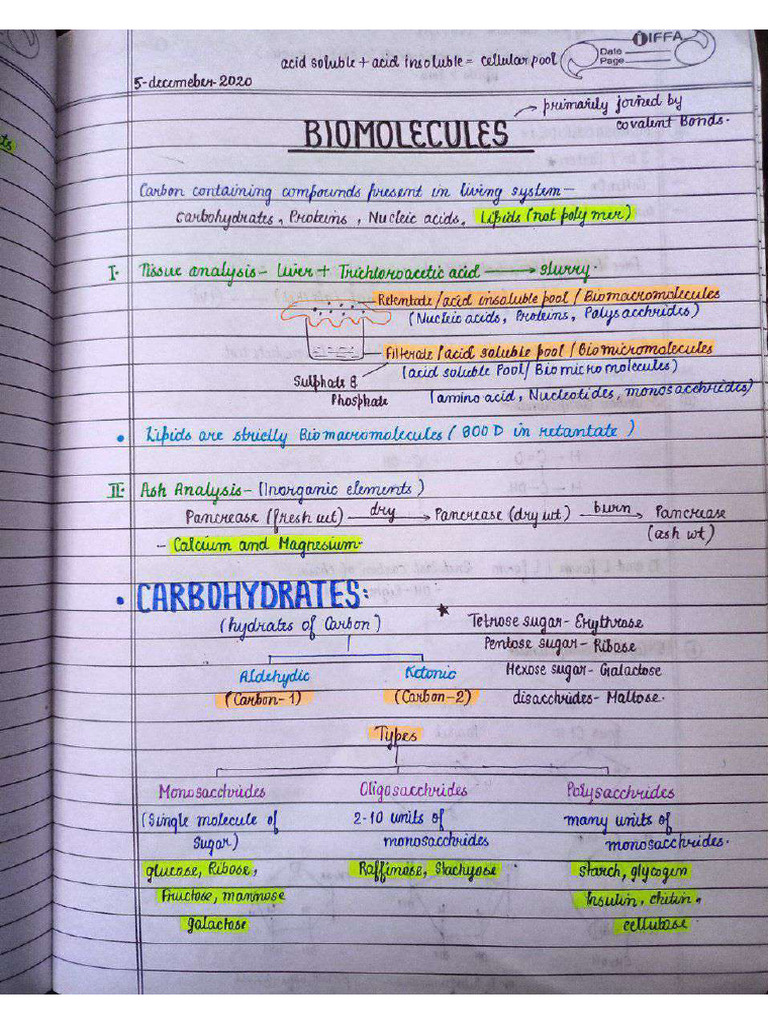 IFFA
Date
Page
acid soluble + acid insoluble = cellular pool
5-decemeber-2020
primarily joined by
covalent Bonds.
BIOMOLECULES
Carbon containing compounds present in living system-
Carbohydrates, Proteins, Nucleic acids, Lipids (not polymer)
I. Tissue analysis- Liver + Trichloroacetic acid → slurry.
Retentade/acid insoluble pool/Biomacromolecules
(Nucleic acids, Proteins, Polysacchrides)
Filterate/acid soluble pool/Biomicromolecules
(acid soluble Pool/Biomicromolecules)
Sulphate &
Phosphate
(amino acid, Nucleotides, monosacchrides)
• Lipids are strictly Biomacromolecules (800 D in retantate)
II. Ash Analysis- (Inorganic elements)
Pancrease (fresh wt) dry → Pancrease (dry wt) burn → Pancrease
(ash wt)
- Calcium and Magnesium.
• CARBOHYDRATES:
(hydrates of Carbon)
★ Tetrose sugar- Erythrose
Pentose sugar- Ribose
Hexose sugar- Galactose
disacchrides- Maltose.
Aldehydic Ketonic
(Carbon-1) (Carbon-2)
Types
Monosacchrides Oligosacchrides Polysacchrides
(Single molecule of 2-10 units of many units of
sugar) monosacchrides monosacchrides.
glucose, Ribose, Raffinose, Stachyose starch, glycogen
Fructose, mannose Insulin, chitin.
galactose cellubase